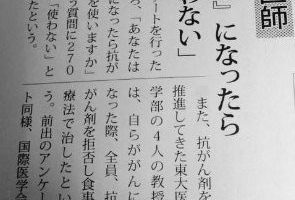 医師
』になったら
わない」
ートを行った
ろ、「あなたは
になったら抗が
を使いますか
う質問に270
「使わない」と
たという。
また、抗がん剤を
推進してきた東大医
学部の4人の教授
は、自らががんに
なった際、全員、抗
がん剤を拒否し食事
療法で治したとい
う。前出のアンケー
ト同様、国際医学会